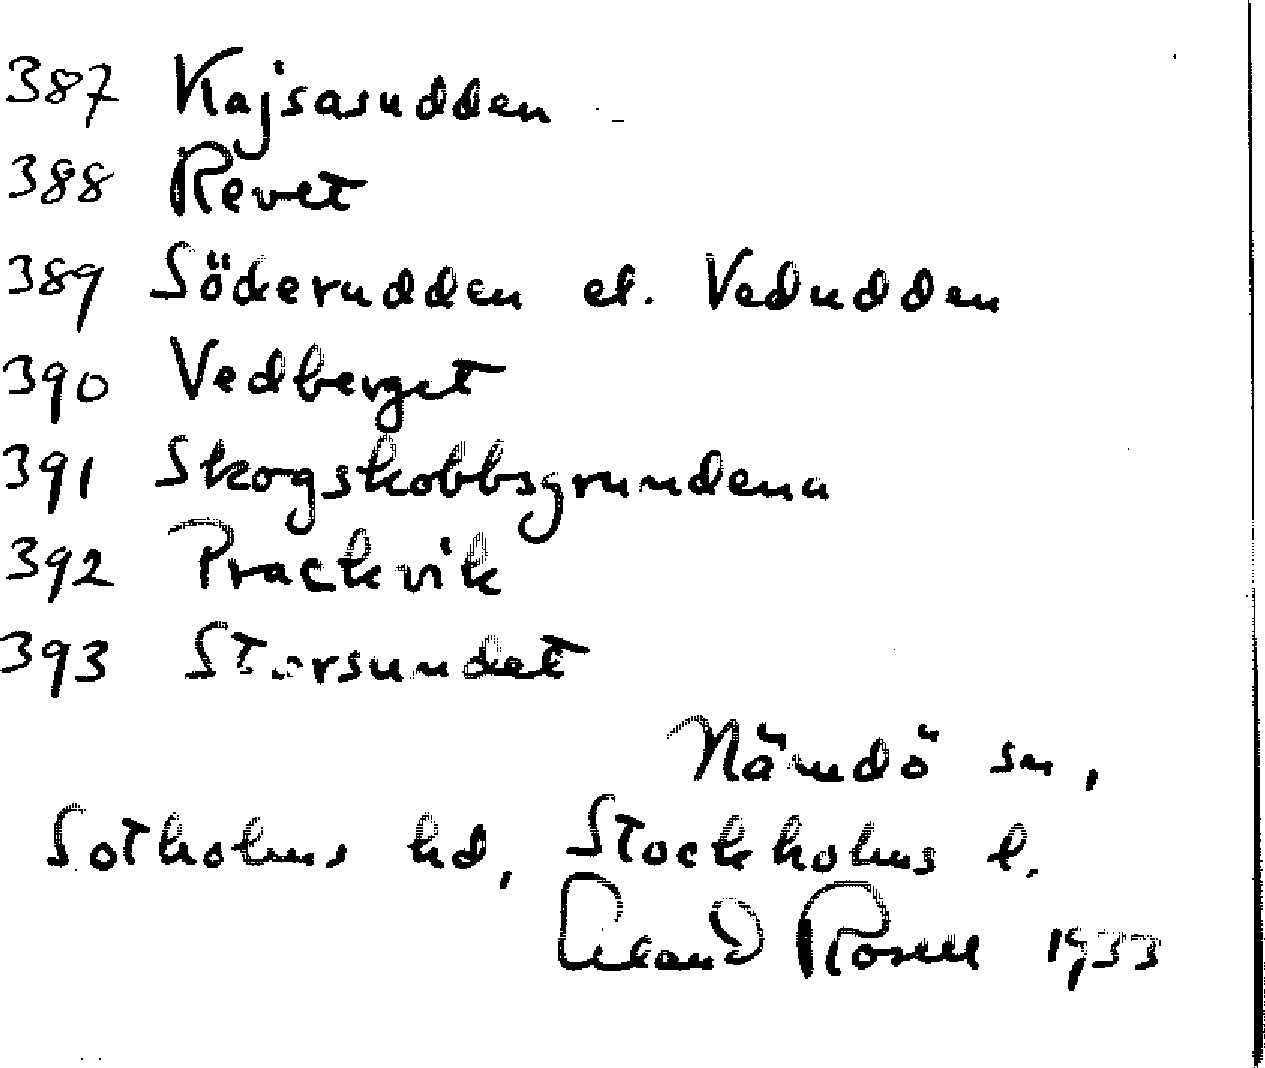 387 Kajsasudden
388 Revet
389 Söderudden el. Vedudden
390 Vedberget
391 Skogskobbsgrundena
392 Prackvik
393 Storsundet
Nämdö sn,
Sotholms hd, Stockholms l.
Erland Rosell 1933